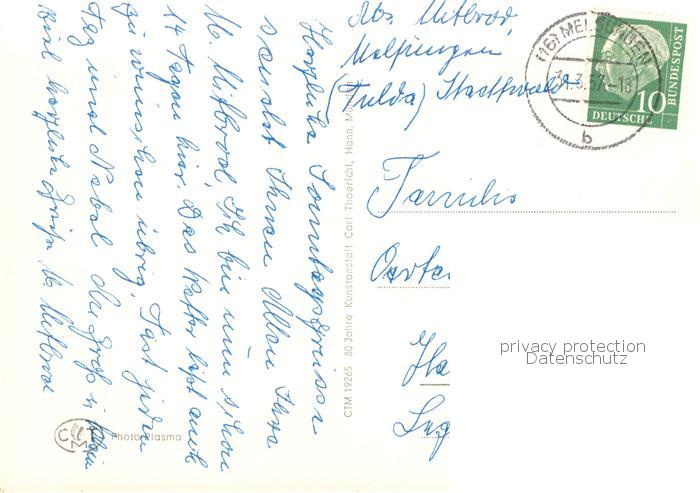 Abs. Mitbrod,
Melsungen
(Fulda) Stadtwald
(16) MELSUNGEN
31.3.57.-18
b
10
DEUTSCHE
BUNDESPOST
Familie
Herzliche Sonntagsgrüsse
sendet Ihnen Allen Ihre
M. Mitbrod, Ich bin nun schon
14 Tagen hier. Das Wetter läßt auch
zu wünschen übrig. Fast jeden
Tag sind Nebel
viel herzliche Grüße M. Mitbrod
CTM 19265 80 Jahre Kunstanstalt Carl Thoericht, Hann.
CTM
Photo Plasma
privacy protection
Datenschutz